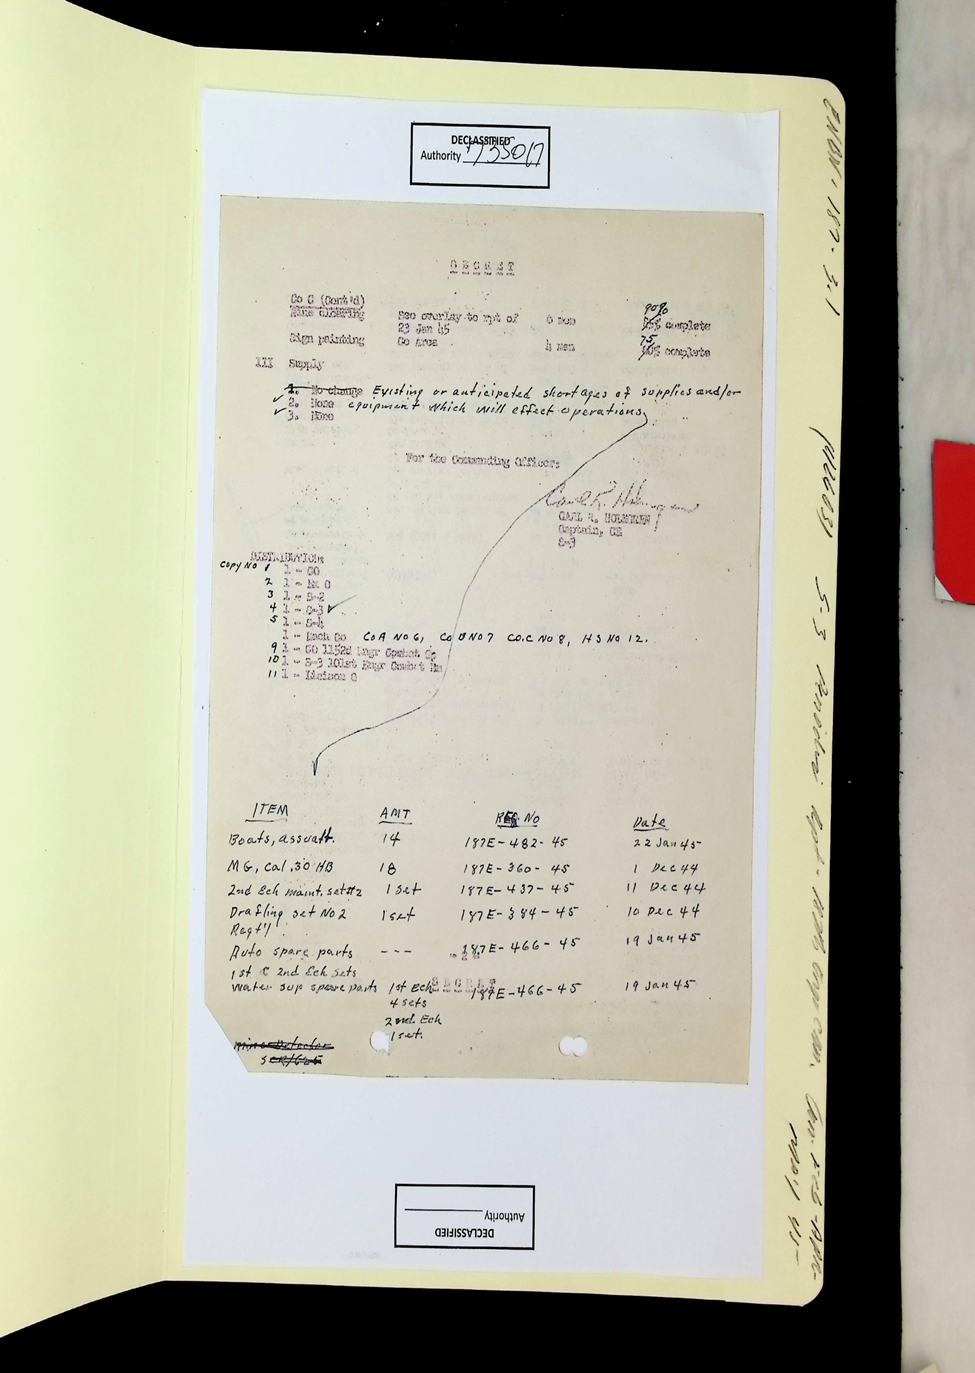 DECLASSIFIED
Authority 735017
SECRET
Co C (Cont'd)
Mine clearing See overlay to rpt of 6 men 90%
23 Jan 45 complete
Sign painting Co Area 4 men 75
complete
III Supply
1. No change Existing or anticipated shortages of supplies and/or
2. None equipment which will effect operations
3. None
For the Commanding Officer:
Carl R. Holmgren
CARL R. HOLMGREN
Captain, CE
S-3
DISTRIBUTION:
Copy No 1 1 - CO
2 1 - Ex O
3 1 - S-2
4 1 - S-3
5 1 - S-4
1 - Each Co Co A No 6, Co B No 7 Co. C No 8, HS No 12.
9 1 - CO 1152d Engr Combat Gp
10 1 - S-3 101st Engr Combat Bn
11 1 - Liaison O
ITEM AMT REQ No Date
Boats, assualt. 14 187E-482-45 22 Jan 45
MG, Cal .30 HB 18 187E-360-45 1 Dec 44
2nd Ech maint. set #2 1 set 187E-437-45 11 Dec 44
Drafting set No 2 1 set 187E-384-45 10 Dec 44
Regt'l
Auto spare parts --- 187E-466-45 19 Jan 45
1st & 2nd Ech Sets
Water sup spare parts 1st Ech 187E-466-45 19 Jan 45
SECRET
4 sets
2nd. Ech
1 set.
Mine Detector
SCR/625
DECLASSIFIED
Authority
ENGN-187-3.1
S-3 Periodic Rpt-